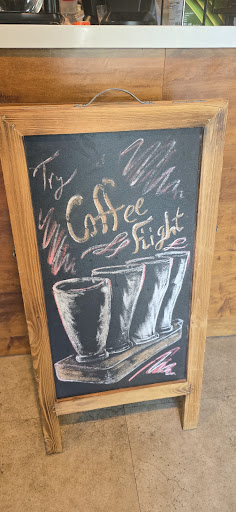 Try
Coffee
Flight